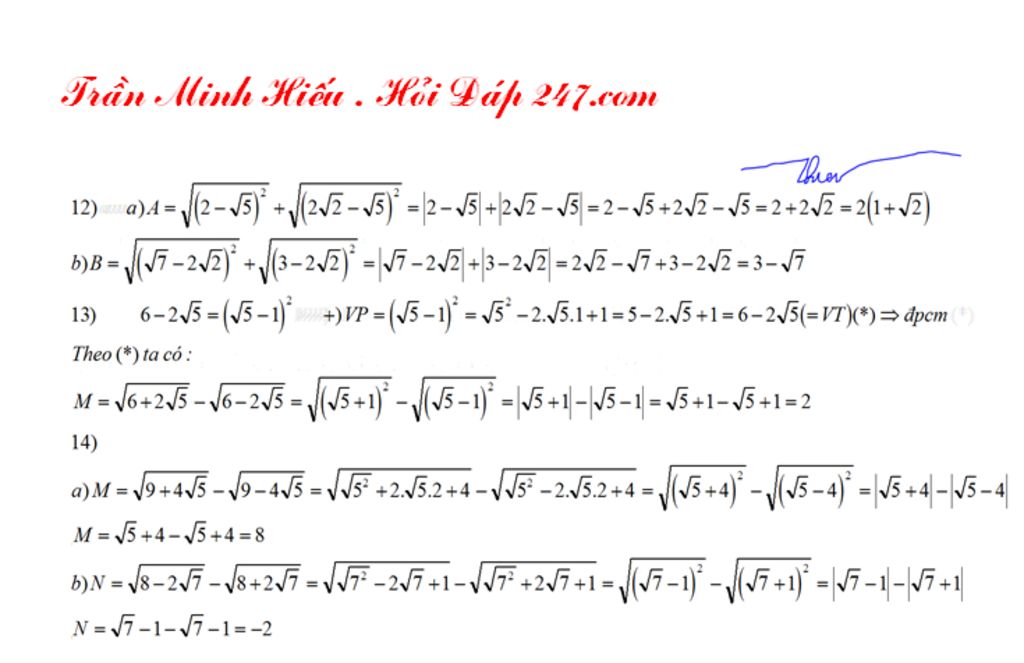 Trần Minh Hiếu . Hỏi Đáp 247.com
12) a) A = √(2−√5)² + √(2√2−√5)² = |2−√5|+|2√2−√5| = 2−√5+2√2−√5 = 2+2√2 = 2(1+√2)
b) B = √(√7−2√2)² + √(3−2√2)² = |√7−2√2|+|3−2√2| = 2√2−√7+3−2√2 = 3−√7
13) 6−2√5 = (√5−1)² +) VP = (√5−1)² = √5² −2.√5.1+1 = 5−2.√5+1 = 6−2√5(= VT)(*) ⇒ đpcm (*)
Theo (*) ta có :
M = √(6+2√5) − √(6−2√5) = √(√5+1)² − √(√5−1)² = |√5+1|−|√5−1| = √5+1−√5+1 = 2
14)
a) M = √(9+4√5) − √(9−4√5) = √(√5²+2.√5.2+4) − √(√5²−2.√5.2+4) = √(√5+4)² − √(√5−4)² = |√5+4|−|√5−4|
M = √5+4−√5+4 = 8
b) N = √(8−2√7) − √(8+2√7) = √(√7²−2√7+1) − √(√7²+2√7+1) = √(√7−1)² − √(√7+1)² = |√7−1|−|√7+1|
N = √7−1−√7−1 = −2